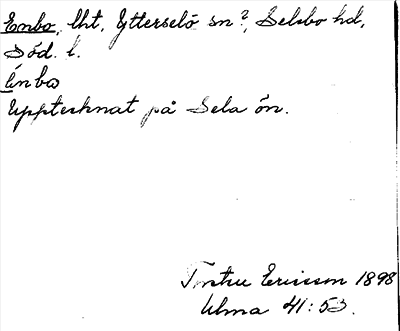 Enbo, lht, Ytterselö sn?, Selebo hd,
Söd. l.
Enbo
Upptecknat på Sela ön.
Ericsson 1898
Ulma 41:53.